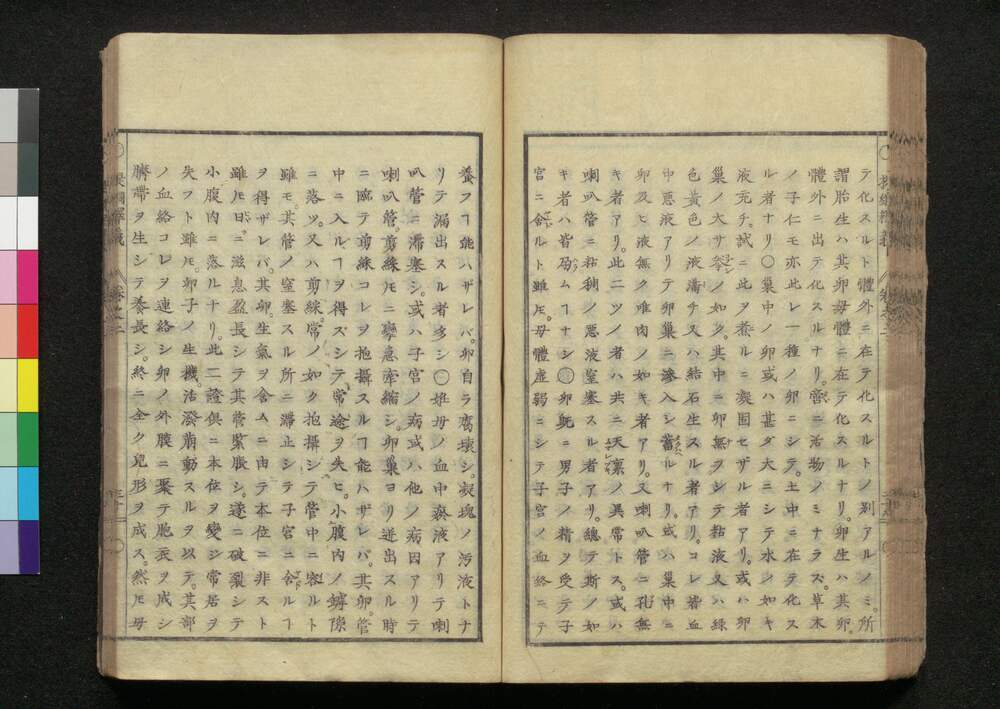 テ化スルト體外ニ在テ化スルトノ別アルノミ。所
謂胎生ハ其卵母體ニ在テ化スルナリ。卵生ハ其卵
體外ニ出テ化スルナリ。啻ニ活物ノミナラズ。草木
ノ子仁モ亦此レ一種ノ卵ニシテ。土中ニ在テ化ス
ル者ナリ〇巢中ノ卵或ハ甚ダ大ニシテ水ノ如キ
液充チ。試ニ此ヲ煮ルニ凝固セザル者アリ。或ハ卵
巢ノ大サ拳ノ如ク。其中ニ卵無ヲシテ黏液又ハ綠
色黃色ノ液滿チ又ハ結石生スル者アリ。コレ若血
中惡液アリテ卵巢ニ滲入シ蓄ルナリ。或ハ巢中ニ
卵及ヒ液無ク唯肉ノ如キ者アリ。又喇叭管ニ孔無
キ者アリ。此二ツノ者ハ共ニ天稟ノ異常トス。或ハ
喇叭管ニ粘稠ノ惡液窒塞スル者アリ。總テ斯ノ如
キ者ハ皆孕ムヿナシ〇卵既ニ男子ノ精ヲ受テ子
宮ニ舍ルト雖モ。母體虛弱ニシテ子宮ノ血終ニテ
養フヿ能ハザレバ。卵自ラ腐壞シ。凝塊ノ汚液トナ
リテ漏出スル者多シ〇姙母ノ血中瘀液アリテ喇
叭管ニ滯塞シ。或ハ子宮ノ病或ハ他ノ病因アリテ
喇叭管。剪綵モニ攣急牽縮シ。卵巢ヨリ逬出スル時
ニ臨テ剪綵コレヲ抱攝スルヿ能ハザレバ。其卵。管
中ニ入ルヿヲ得ズシテ常途ヲ失ヒ。小腹內ノ罅隙
ニ落ツ。又ハ剪綵。常ノ如ク抱攝シテ管中ニ容ルト
雖モ。其管ノ窒塞スル所ニ滯止シテ子宮ニ舍ルヿ
ヲ得ザレバ。其卵。生氣ヲ含ムニ由テ本位ニ非スト
雖モ日ニ滋息盈長シテ其管緊脹シ。遂ニ破裂シテ
小腹內ニ落ルナリ。此二證俱ニ本位ヲ變シ常居ヲ
失フト雖モ。卵子ノ生機。活潑萠動スルヲ以テ。其部
ノ血絡コレヲ連絡シ卵ノ外膜ニ聚テ胞衣ヲ成シ
臍帶ヲ生シテ養長シ。終ニ全ク兒形ヲ成ス。然モ母